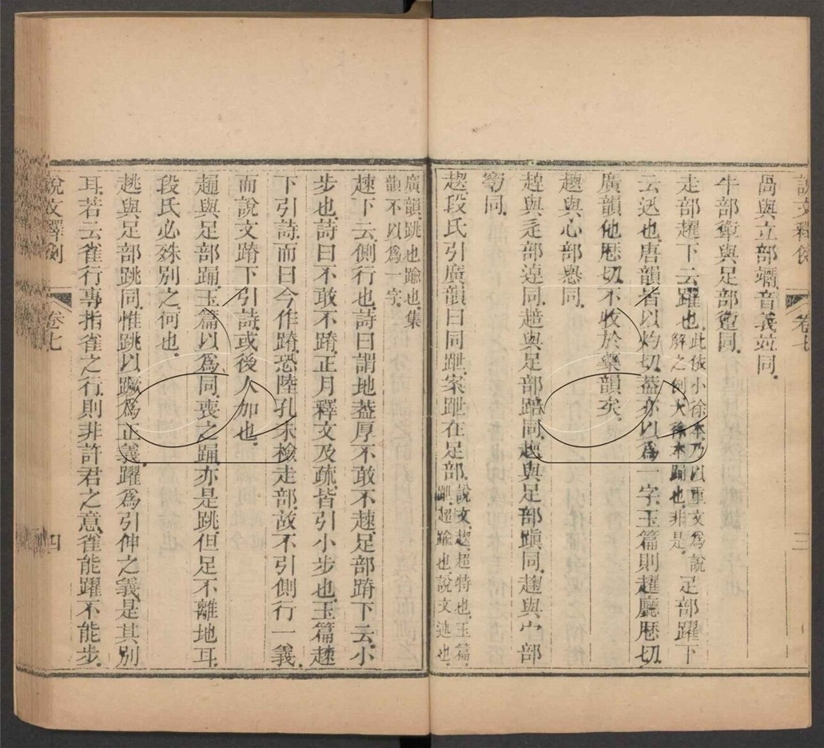 說文釋例 卷七 三
咼與立部竵音義竝同
牛部䡺與足部衞同
走部趯下云躍也此依小徐本乃以重文為說解之例大徐本踊也非是足部躍下
云迅也唐韻皆以灼切蓋亦以爲一字玉篇則趯廳歷切
廣韻他歷切不收於藥韻矣
與心部同
與辵部同與足部同與足部蹎同與穴部
同
段氏引廣韻曰同跐案跐在足部說文超特也玉篇超踰也說文述也
廣韻跳也踰也集韻不以為一字
趚下云側行也詩曰謂地蓋厚不敢不趚足部蹐下云小
步也詩曰不敢不蹐正月釋文及疏皆引小步也玉篇趚
下引詩而曰今作蹐恐陸孔未檢走部故不引側行一義
而說文蹐下引詩或後人加也
與足部踊玉篇以為同喪之踊亦是跳但足不離地耳
段氏必殊別之何也
趒與足部跳同惟跳以蹶為正義躍為引伸之義是其別
耳若云雀行專指雀之行則非許君之意雀能躍不能步
說文釋例 卷七 四